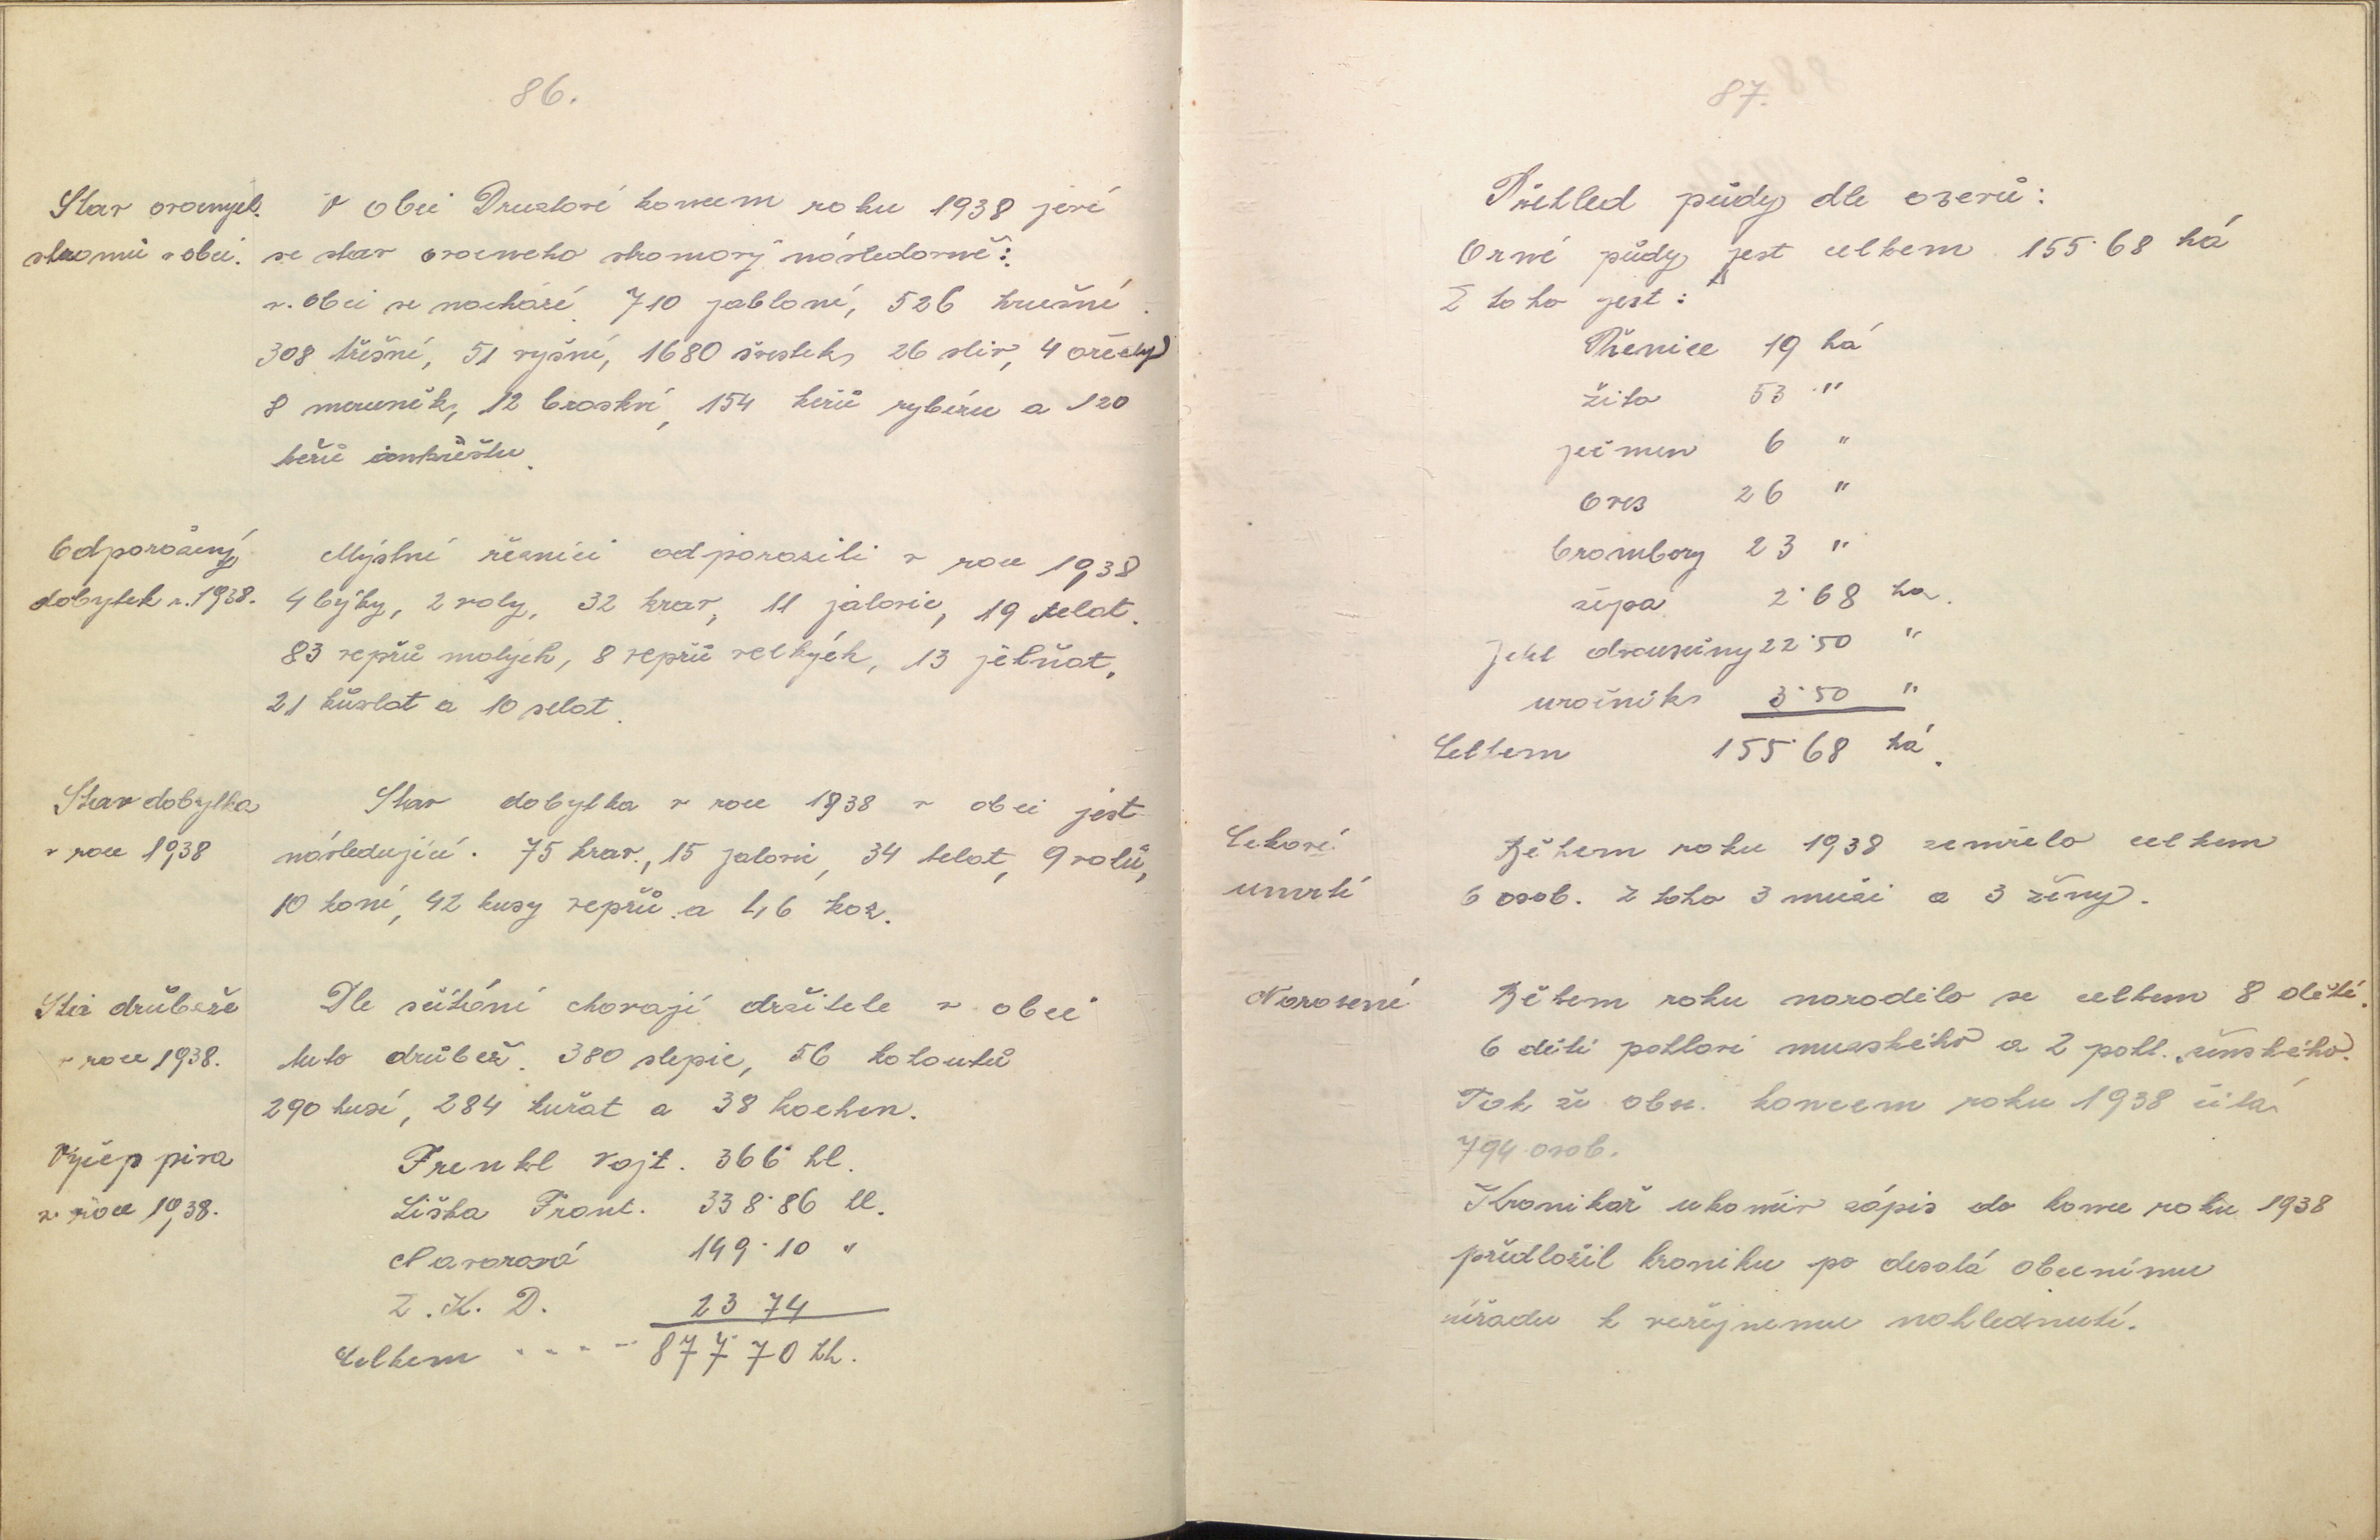 86.
Stav ovocnych
stromů v obci.
V obci Druztové koncem roku 1938 jeví
se stav ovocneho stromoví následovně:
v. obci se nachází 710 jabloní, 526 hrušní
308 třešní, 51 vyšní, 1680 švestek, 26 sliv, 4 ořechy
8 meruněk, 12 broskví, 154 keřů rybízu a 120
keřů
Odporažený
dobytek r. 1938.
Mýstní řezníci odporazili v roce 1938
4 býky, 2 voly, 32 krav, 11 jalovic, 19 telat.
83 vepřů malých, 8 vepřů velkých, 13 jehňat,
21 kůzlat a 10 selat.
Stav dobytka
v roce 1938
Stav dobytka v roce 1938 v obci jest
následující. 75 krav, 15 jalovic, 34 telat, 9 volů,
10 koní, 42 kusy vepřů a 46 koz.
Stav drůbeže
v roce 1938.
Dle sčítání chovají držitele v obci
tuto drůbež. 380 slepic, 56 kohoutů
290 husí, 284 kuřat a 38 kachen.
Výčep piva
v roce 1938.
Frenkl Vojt. 366 hl.
Liška Frant. 338·86 hl.
Navarová 149·10 "
Z. K. D. 23 74
Celkem - - - - 877 70 hl.
87.
Přehled půdy dle osevů:
Orné půdy jest celkem 155·68 há
Z toho jest:
Pšenice 19 há
žito 53 "
ječmen 6 "
oves 26 "
brambory 23 "
řepa 2·68 ha.
Jetel dvousečný 22·50 "
uročník 3·50 "
Celkem 155·68 há.
umrtí
Během roku 1938 zemřelo celkem
6 osob. z toho 3 muži a 3 ženy.
Narození
Během roku narodilo se celkem 8 dětí.
6 dětí pohlaví mužského a 2 pohl. ženského.
Tak že obec koncem roku 1938 čítá
794 osob.
Kronikář ukončiv zápis do konce roku 1938
předložil kroniku po desáté obecnímu
úřadu k veřejnemu nahlednutí.